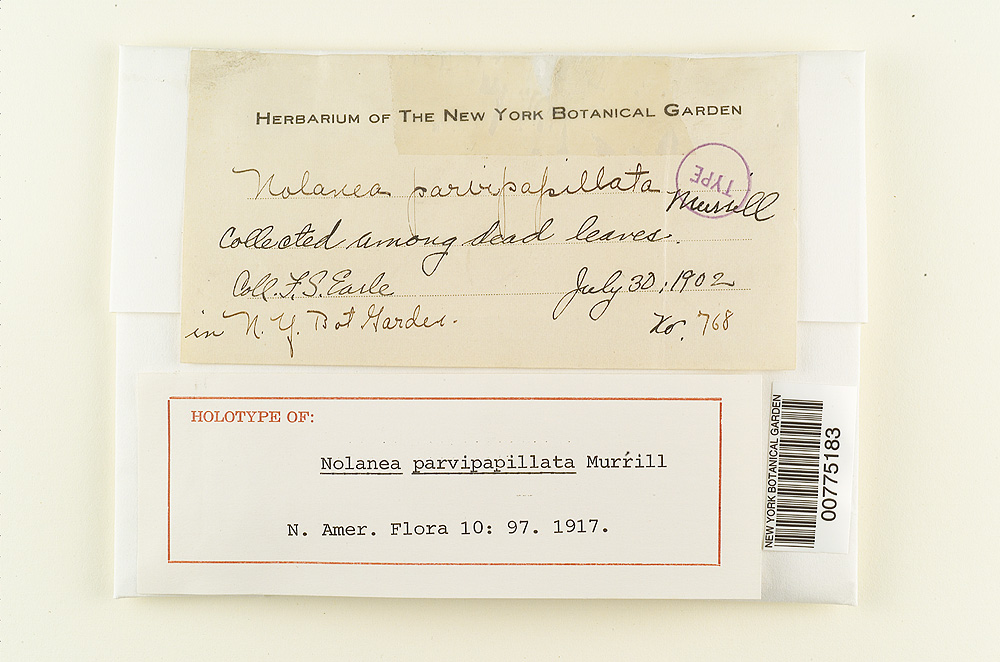 HERBARIUM OF THE NEW YORK BOTANICAL GARDEN
TYPE
Nolanea parvipapillata Murrill
Collected among dead leaves.
Coll. F.S. Earle July 30, 1902
in N. Y. Bot Garden. No. 768
HOLOTYPE OF:
Nolanea parvipapillata Murrill
N. Amer. Flora 10: 97. 1917.
NEW YORK BOTANICAL GARDEN
00775183